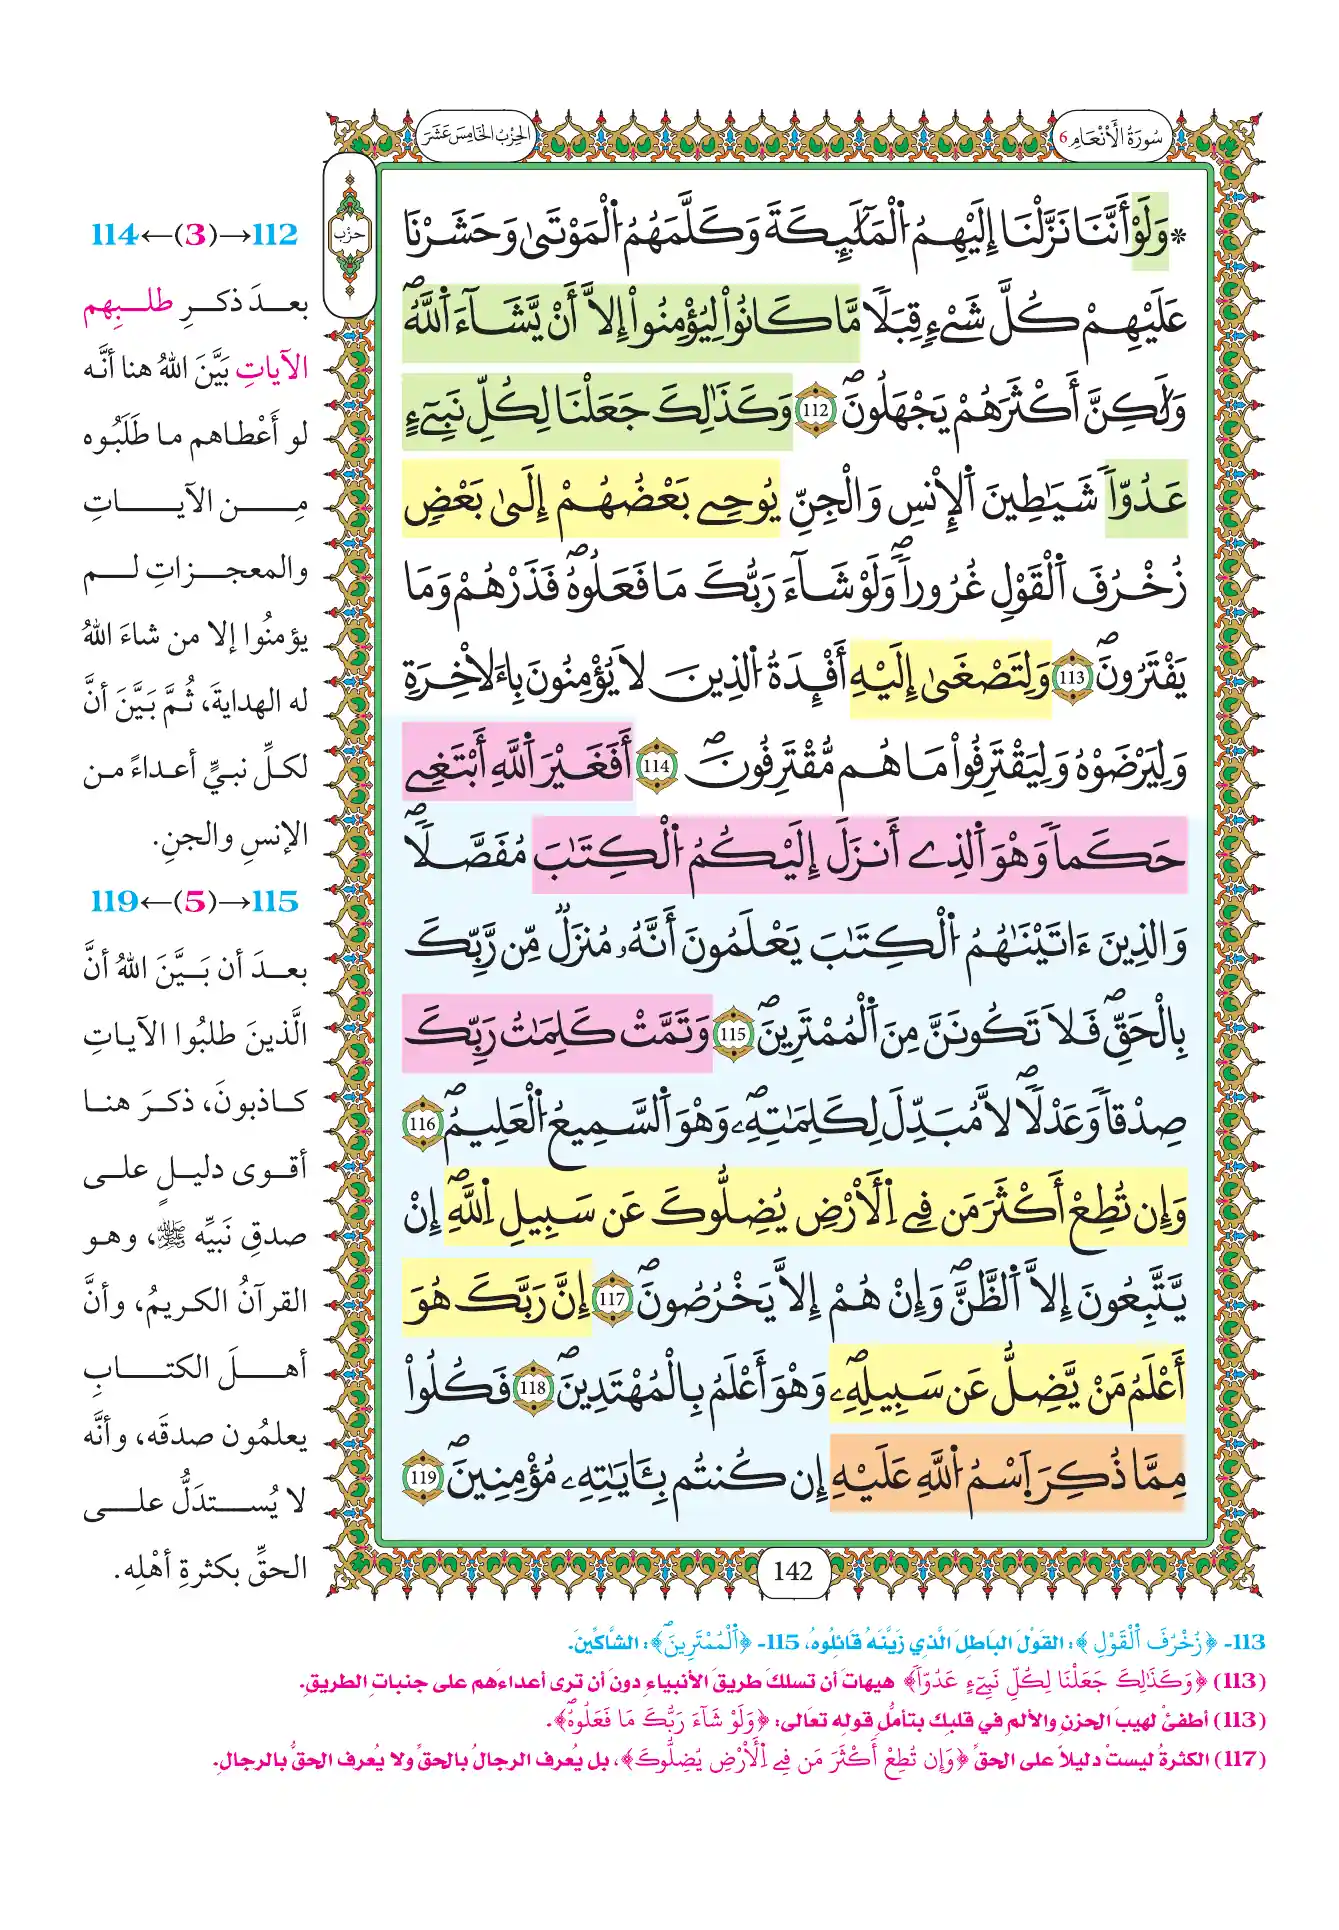 سُورَةُ الأَنْعَامِ 6
الحِزْبُ الخَامِسَ عَشَرَ
حزب
* وَلَوْ أَنَّنَا نَزَّلْنَا إِلَيْهِمُ اُ۬لْمَلَٰٓئِكَةَ وَكَلَّمَهُمُ اُ۬لْمَوْتَىٰ وَحَشَرْنَا
عَلَيْهِمْ كُلَّ شَےْءٖ قِبَلاٗ مَّا كَانُواْ لِيُؤْمِنُوٓاْ إِلَّآ أَنْ يَّشَآءَ اَ۬للَّهُۖ
وَلَٰكِنَّ أَكْثَرَهُمْ يَجْهَلُونَۖ 112 وَكَذَٰلِكَ جَعَلْنَا لِكُلِّ نَبِےٓءٍ
عَدُوّاٗ شَيَٰطِينَ اَ۬لْإِنسِ وَالْجِنِّ يُوحِے بَعْضُهُمْ إِلَىٰ بَعْضٖ
زُخْرُفَ اَ۬لْقَوْلِ غُرُوراٗۖ وَلَوْ شَآءَ رَبُّكَ مَا فَعَلُوهُۖ فَذَرْهُمْ وَمَا
يَفْتَرُونَۖ 113 وَلِتَصْغَىٰٓ إِلَيْهِ أَفْـِٕدَةُ اُ۬لذِينَ لَا يُؤْمِنُونَ بِالَاخِرَةِ
وَلِيَرْضَوْهُ وَلِيَقْتَرِفُواْ مَا هُم مُّقْتَرِفُونَۖ 114 أَفَغَيْرَ اَ۬للَّهِ أَبْتَغِے
حَكَماٗ وَهُوَ اَ۬لذِےٓ أَنزَلَ إِلَيْكُمُ اُ۬لْكِتَٰبَ مُفَصَّلاٗۖ
وَالذِينَ ءَاتَيْنَٰهُمُ اُ۬لْكِتَٰبَ يَعْلَمُونَ أَنَّهُۥ مُنزَلٞ مِّن رَّبِّكَ
بِالْحَقِّۖ فَلَا تَكُونَنَّ مِنَ اَ۬لْمُمْتَرِينَۖ 115 وَتَمَّتْ كَلِمَٰتُ رَبِّكَ
صِدْقاٗ وَعَدْلاٗۖ لَّا مُبَدِّلَ لِكَلِمَٰتِهِۦۖ وَهُوَ اَ۬لسَّمِيعُ اُ۬لْعَلِيمُۖ 116
وَإِن تُطِعْ أَكْثَرَ مَن فِے اِ۬لْأَرْضِ يُضِلُّوكَ عَن سَبِيلِ اِ۬للَّهِۖ إِنْ
يَّتَّبِعُونَ إِلَّا اَ۬لظَّنَّۖ وَإِنْ هُمْ إِلَّا يَخْرُصُونَۖ 117 إِنَّ رَبَّكَ هُوَ
أَعْلَمُ مَنْ يَّضِلُّ عَن سَبِيلِهِۦۖ وَهُوَ أَعْلَمُ بِالْمُهْتَدِينَۖ 118 فَكُلُواْ
مِمَّا ذُكِرَ اَ۪سْمُ اُ۬للَّهِ عَلَيْهِ إِن كُنتُم بِـَٔايَٰتِهِۦ مُؤْمِنِينَۖ 119
142
112→(3)←114
بعدَ ذكرِ طلبِهم
الآياتِ بَيَّنَ اللهُ هنا أنَّه
لو أَعْطاهم ما طَلَبُوه
مِن الآياتِ
والمعجزاتِ لم
يؤمنُوا إلا من شاءَ اللهُ
له الهدايةَ، ثُمَّ بَيَّنَ أنَّ
لكلِّ نبيٍّ أعداءً من
الإنسِ والجنِ.
115→(5)←119
بعدَ أن بَيَّنَ اللهُ أنَّ
الَّذينَ طلبُوا الآياتِ
كاذبونَ، ذكرَ هنا
أقوى دليلٍ على
صدقِ نَبيِّه ﷺ، وهو
القرآنُ الكريمُ، وأنَّ
أهلَ الكتابِ
يعلمُون صدقَه، وأنَّه
لا يُستدَلُّ على
الحقِّ بكثرةِ أهْلِه.
113- ﴿زُخْرُفَ اَ۬لْقَوْلِ﴾: القَوْلَ البَاطِلَ الَّذِي زَيَّنَهُ قَائِلُوهُ، 115- ﴿اَ۬لْمُمْتَرِينَۖ﴾: الشَّاكِّينَ.
(113) ﴿وَكَذَٰلِكَ جَعَلْنَا لِكُلِّ نَبِےٓءٍ عَدُوّاٗ﴾ هيهاتَ أن تسلكَ طريقَ الأنبياءِ دونَ أن ترى أعداءَهم على جنباتِ الطريقِ.
(113) أطفئْ لهيبَ الحزنِ والألمِ في قلبِك بتأملِ قولِه تعَالى: ﴿وَلَوْ شَآءَ رَبُّكَ مَا فَعَلُوهُۖ﴾.
(117) الكثرةُ ليستْ دليلاً على الحقِّ ﴿وَإِن تُطِعْ أَكْثَرَ مَن فِے اِ۬لْأَرْضِ يُضِلُّوكَ﴾، بل يُعرف الرجالُ بالحقِّ ولا يُعرف الحقُّ بالرجالِ.